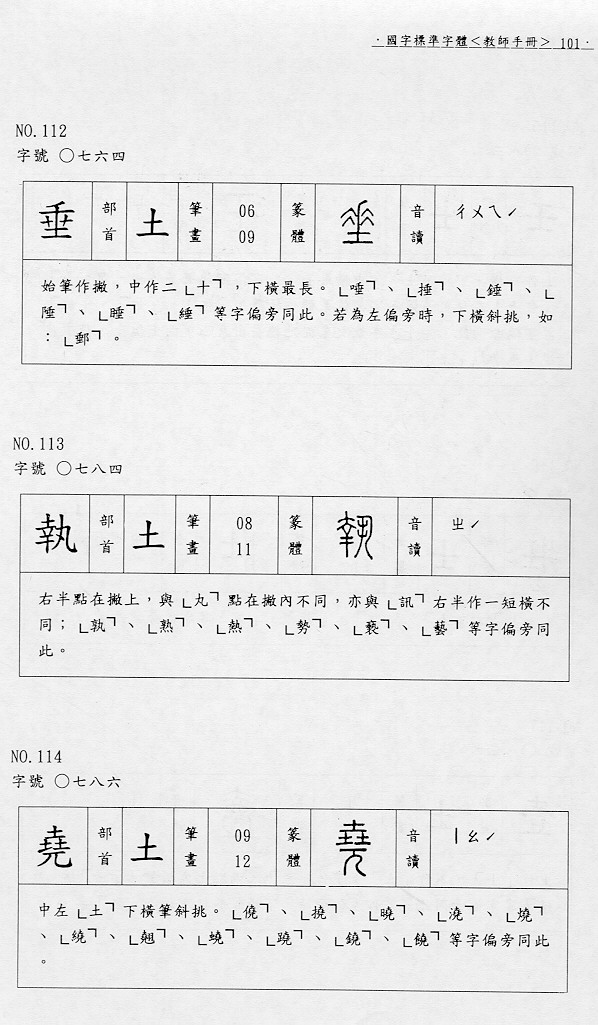 ·國字標準字體<教師手冊> 101·
NO.112
字號 〇七六四
垂 部首 土 筆畫 06 09 篆體 垂 音讀 ㄔㄨㄟˊ
始筆作撇,中作二「十」,下橫最長。「唾」、「捶」、「錘」、「
陲」、「睡」、「綞」等字偏旁同此。若為左偏旁時,下橫斜挑,如
:「郵」。
NO.113
字號 〇七八四
執 部首 土 筆畫 08 11 篆體 執 音讀 ㄓˊ
右半點在撇上,與「丸」點在撇內不同,亦與「訊」右半作一短橫不
同;「孰」、「熟」、「熱」、「勢」、「褻」、「藝」等字偏旁同
此。
NO.114
字號 〇七八六
堯 部首 土 筆畫 09 12 篆體 堯 音讀 ㄧㄠˊ
中左「土」下橫筆斜挑。「僥」、「撓」、「曉」、「澆」、「燒」
、「繞」、「翹」、「蟯」、「蹺」、「鐃」、「饒」等字偏旁同此
。